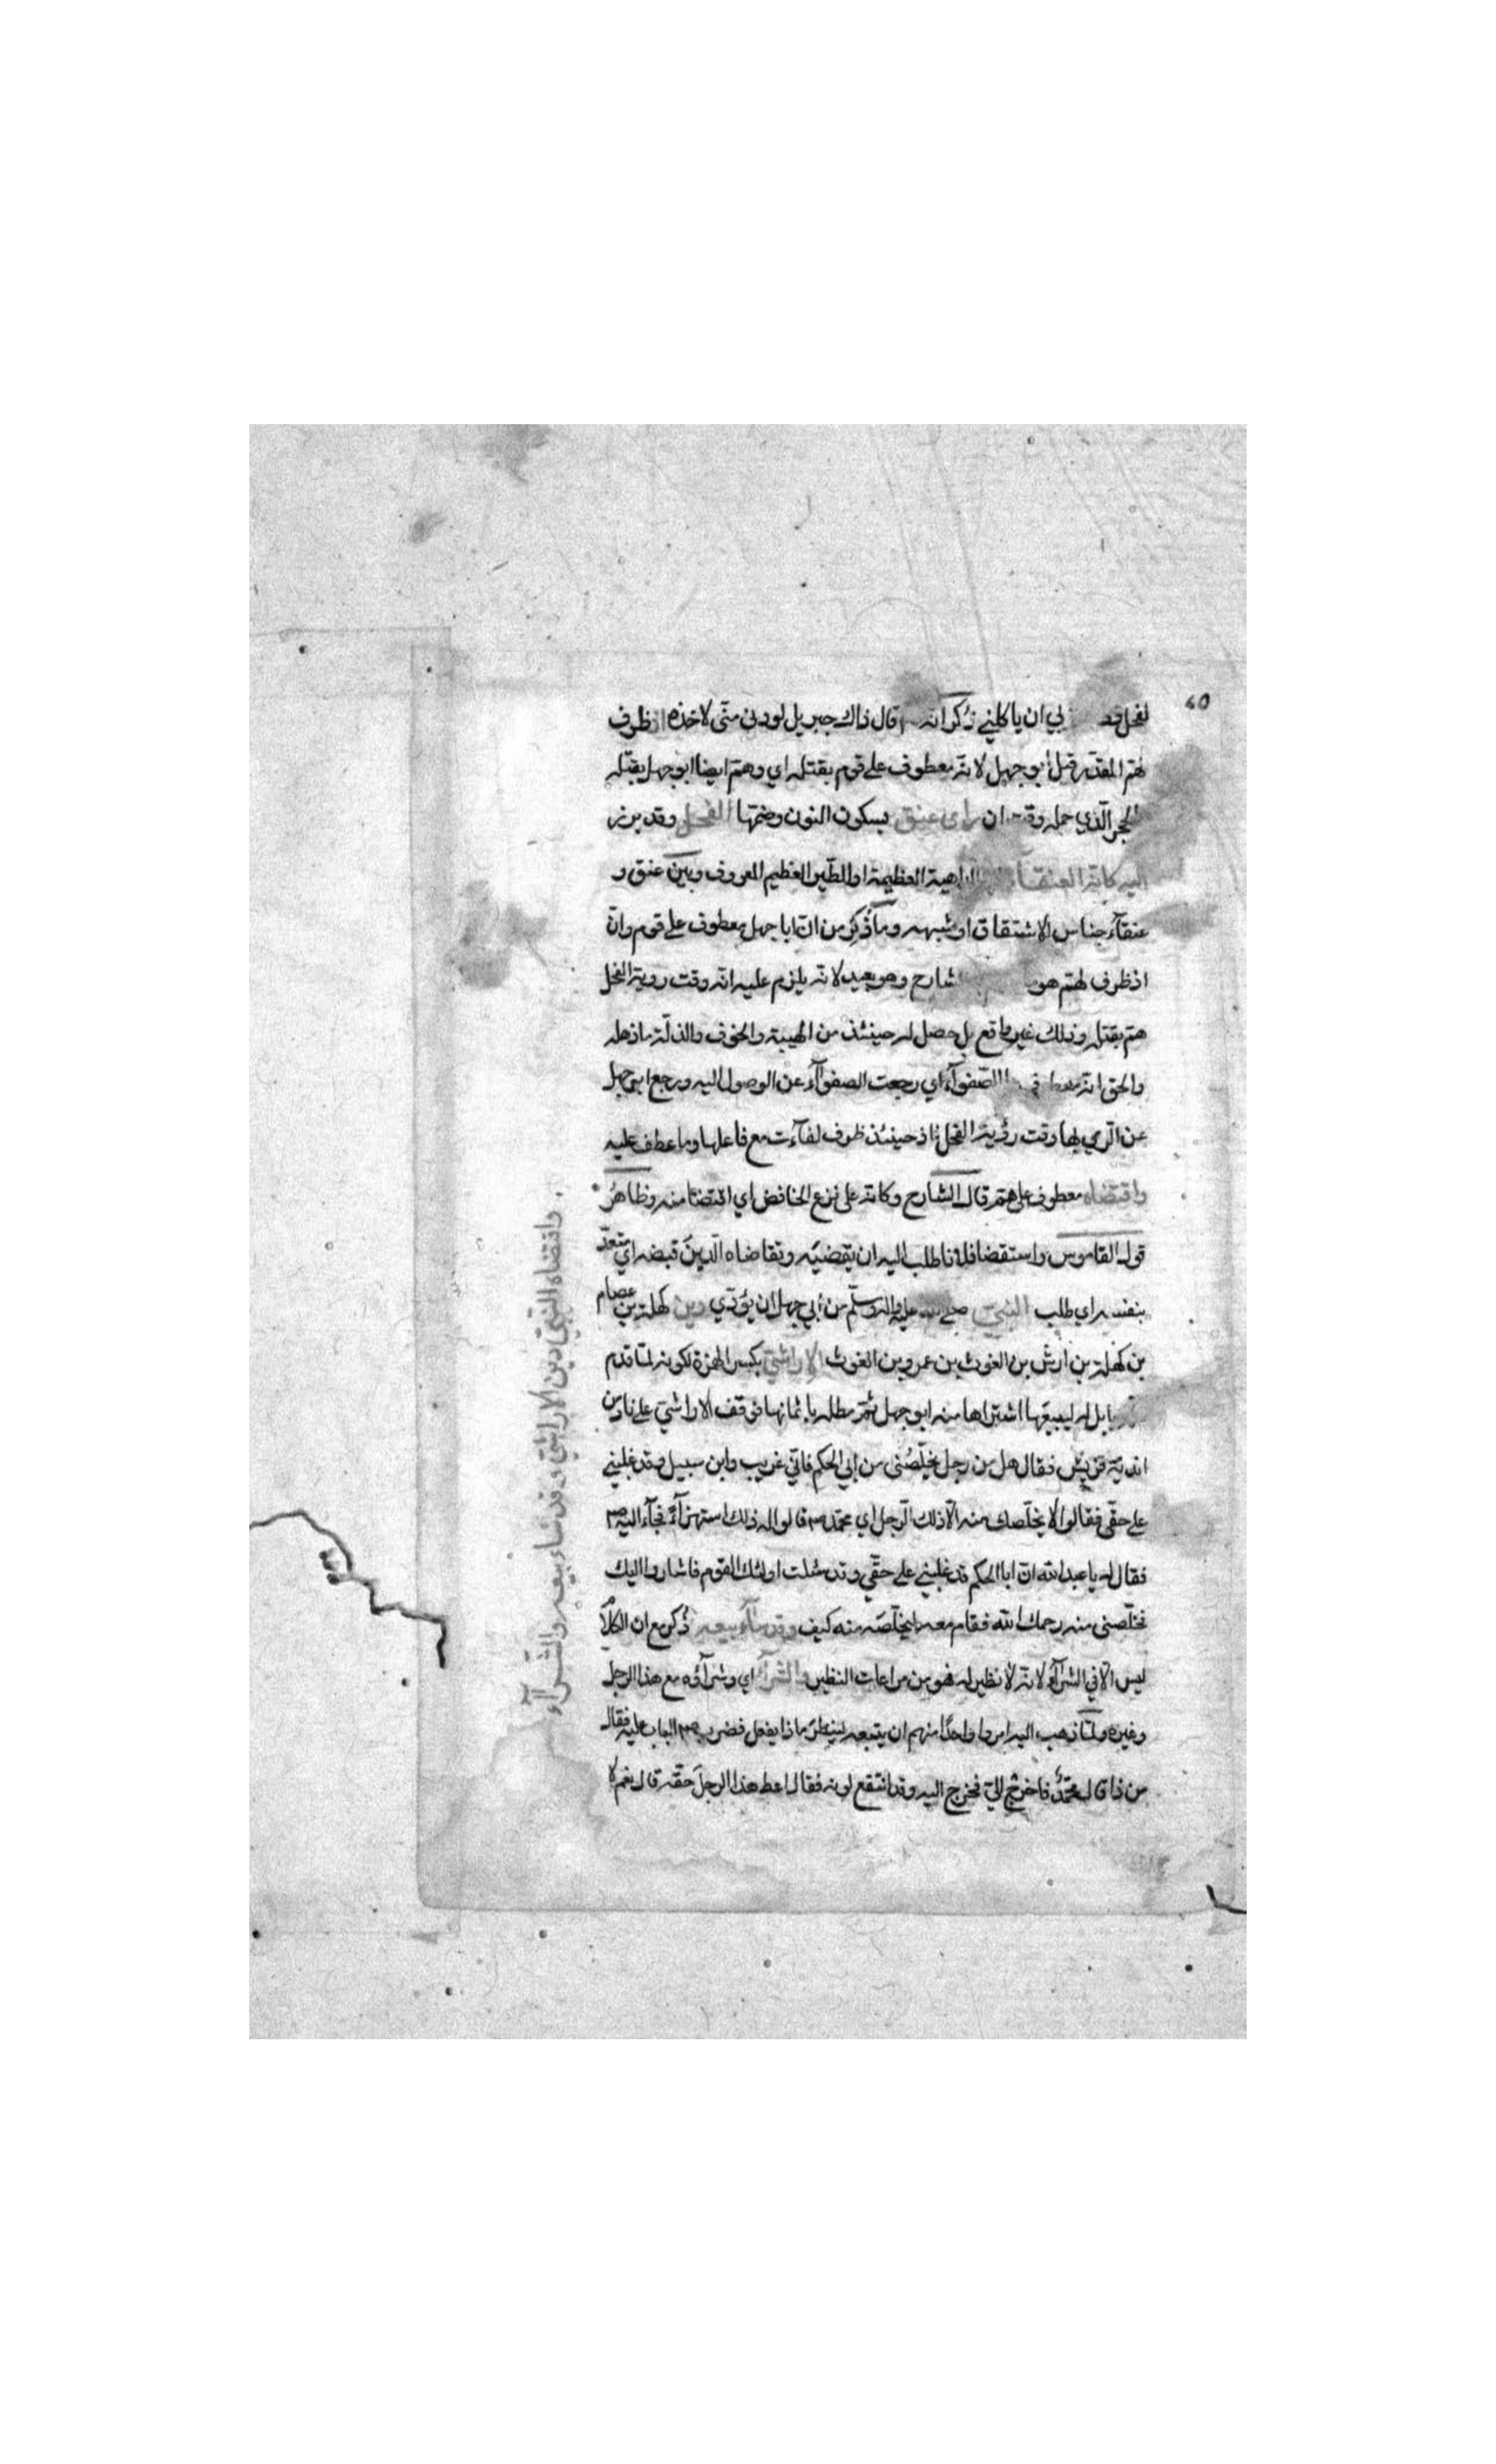 ٤٥
لفحل قط لي ان ياكلني ذكر انه قال ذاك جبريل لو دنى منّي لاخذه اذ ظرف
لهمّ المقدّر قبل أبو جهل لانّه معطوف على قوم بقتله اي وهمّ ايضا ابو جهل بقتله
الحجر الّذي حمله وقت ان رأى عنق بسكون النون وضمّها الفحل وقد برز
اليه كانّه العنقآء الداهية العظيمة او الطّير العظيم المعروف وبين عنق و
عنقآء جناس الاشتقاق او شبهه وما ذُكِرَ من انّ ابا جهل معطوف على قوم وانّ
اذ ظرف لهمّ هو الشارح وهو بعيد لانّه يلزم عليه انّه وقت روية الفحل
همّ بقتله وذلك غير واقع بل حصل له حينئذ من الهيبة والخوف والذلّة ما ذهله
والحق انّه الصّفوآء اي رجعت الصفوآء عن الوصول اليه ورجع ابي جهل
عن الرّمي بها وقت رؤية الفحل اذ حينئذ ظرف لفآءت مع فاعلها وما عطف عليه
واقتضاه معطوف على همّ قال الشارح وكانّه على نزع الخافض اي اقتضا منه وظاهرُ
قول القاموس واستقضا فلانا طلب اليه ان يقضيَه وتقاضاه الدّينَ قبضه اي متعدّ
بنفسه اي طلب النبيّ صلى الله عليه واله وسلّم من أبي جهل ان يؤدّي دين كهلة بن عصام
بن كهلة بن ارش بن الغوث بن عمرو بن الغوث الاراشيّ بكسر الهمزة لكونه لمّا قدم
بابل له ليبيعها اشتراها منه ابو جهل ثمّ مطله باثمانها فوقف الاراشيّ على ناد من
اندية قريش فقال هل من رجل يخلّصُنى من ابي الحكم فانّي غريب وابن سبيل وقد غلبني
على حقّي فقالوا لا يخلّصك منه الّا ذلك الرّجل اي محمّد ص قالوا له ذلك استهزآءً فجآء اليه ص
فقال له يا عبد الله انّ ابا الحكم قد غلبني على حقّي وقد سُلت اولئك القوم فاشاروا اليك
فخلّصنى منه رحمك الله فقام معه ليخلّصَه منه كيف وقد سآء بيعه ذُكر مع ان الكلا
ليس الّا في الشرآء لانّه لا نظير له فهو من مراعات النظير والشرآء اي وشرآؤه مع هذا الرجل
وغيره ولمّا ذهب اليه امروا واحدًا منهم ان يتبعه لينظرَ ماذا يفعل فضرب ص الباب عليه فقال
من ذا قال محمّدٌ فاخرُج اليّ فخرج اليه وقد انتقع لونه فقال اعط هذا الرجلَ حقّه قال نعم لا
واقتضاه النبيّ دين الاراشيّ وقد ساء بيعه والشّرآء